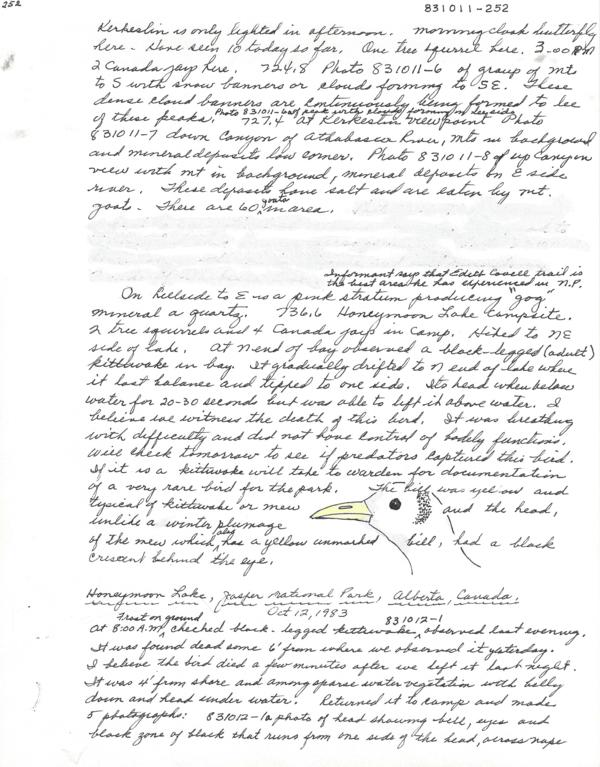 252
831011-252
Kerkeslin is only lighted in afternoon. morning cloak butterfly
here - Have seen 10 today so far. One tree squirrel here. 3:00 PM
2 Canada jays here. 724.8 Photo 831011-6 of group of mts
to S with snow banners or clouds forming to SE. These
dense cloud banners are continuously being formed to lee
Photo 831011-6a of peak with clouds forming on lee side
of these peaks. 727.4 at Kerkeslin viewpoint Photo
831011-7 down Canyon of Athabasca River, mts in background
and mineral deposits low corner. Photo 831011-8 of up Canyon
view with mt in background, mineral deposits on E side
river. These deposits have salt and are eaten by mt.
goats - There are 60 goats in area.
Informant says that Edith Cavell trail is
the best area he has experienced in N.P.
On hillside to E is a pink stratum producing "gog"
mineral a quartz. 736.6 Honeymoon Lake Campsite.
2 tree squirrels and 4 Canada jays in Camp. Hiked to NE
side of lake. At N end of bay observed a black-legged (adult)
kittiwake in bay. It gradually drifted to N end of lake where
it lost balance and tipped to one side. Its head when below
water for 20-30 seconds but was able to lift it above water. I
believe we witness the death of this bird. It was breathing
with difficulty and did not have control of bodily functions.
Will check tomorrow to see if predators captured this bird.
If it is a kittiwake will take to warden for documentation
of a very rare bird for the park. The bill was yellow and
typical of kittiwake or mew and the head,
unlike a winter plumage
of the mew which also has a yellow unmarked bill, had a black
crescent behind the eye.
Honeymoon Lake, Jasper National Park, Alberta, Canada.
Oct 12, 1983
Frost on ground 831012-1
at 8:00 A.M. checked black-legged kittiwake observed last evening.
It was found dead some 6' from where we observed it yesterday.
I believe the bird died a few minutes after we left it last night.
It was 4' from shore and among sparse water vegetation with belly
down and head under water. Returned it to camp and made
5 photographs: 831012-1a photo of head showing bill, eyes and
black zone of black that runs from one side of the head, across nape